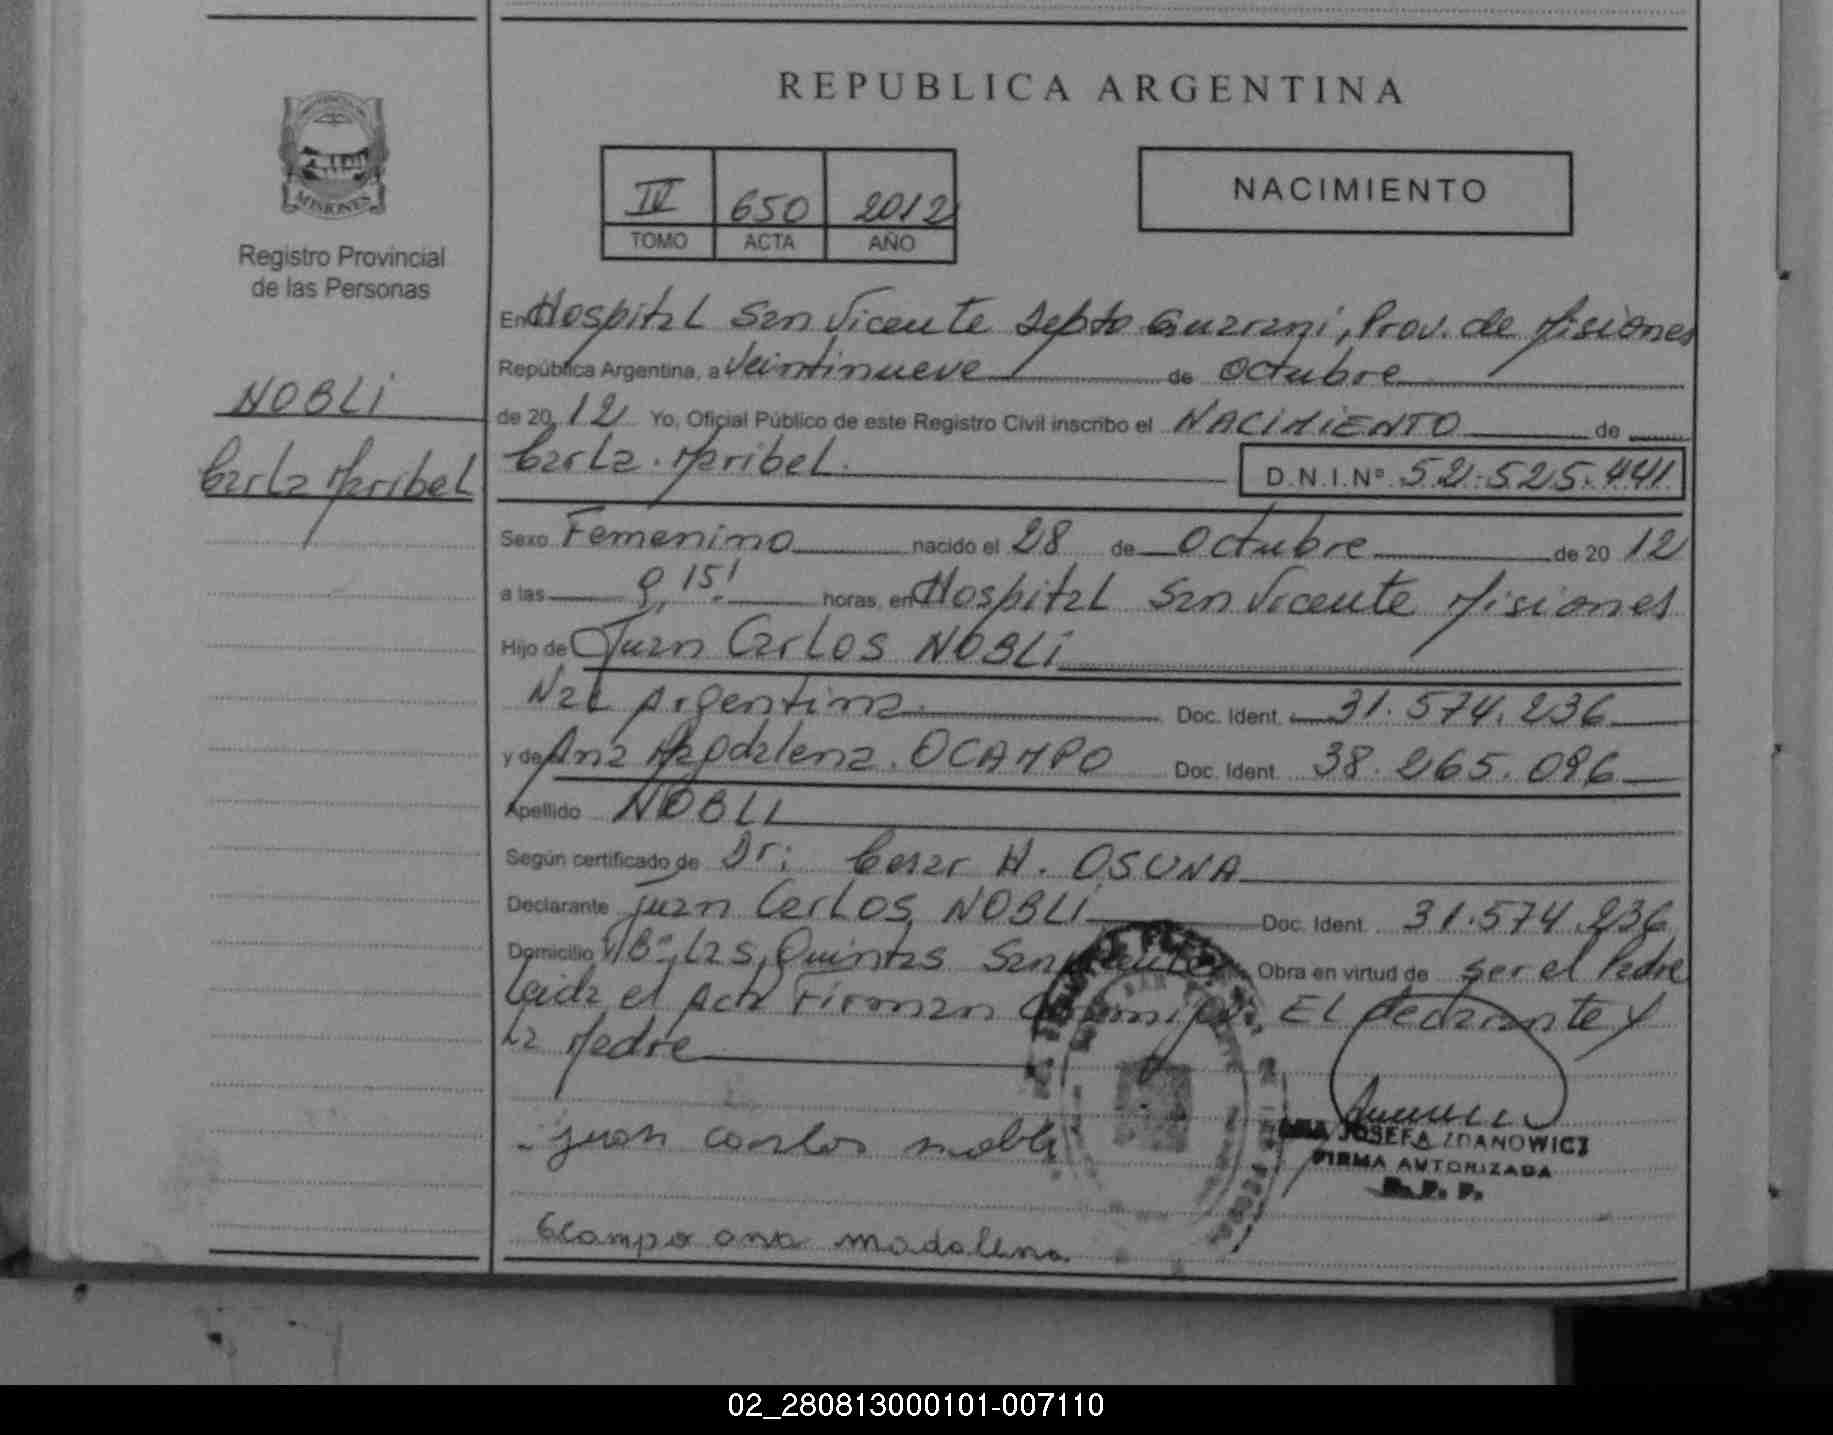 REPUBLICA ARGENTINA
NACIMIENTO
IV 650 2012
TOMO ACTA AÑO
MISIONES
Registro Provincial
de las Personas
NOBLI
Carla Maribel
En Hospital San Vicente Depto Guarani, Prov. de Misiones
República Argentina, a Veintinueve de Octubre
de 20 12 Yo, Oficial Público de este Registro Civil inscribo el NACIMIENTO de
Carla Maribel D.N.I.Nº 52.525.441
Sexo Femenino nacido el 28 de Octubre de 20 12
a las 9,15' horas, en Hospital San Vicente Misiones
Hijo de Juan Carlos NOBLI
Nac Argentina Doc. Ident. 31.574.236
y de Ana Magdalena OCAMPO Doc. Ident. 38.265.096
Apellido NOBLI
Según certificado de Dr: Cesar H. OSUNA
Declarante Juan Carlos NOBLI Doc. Ident. 31.574.236
Domicilio Bº Las Quintas San Vicente Obra en virtud de ser el Padre
Leida el Acta Firman Conmigo El declarante y
La Madre
juan carlos nobli
ANA JOSEFA ZDANOWICZ
FIRMA AUTORIZADA
R. P. P.
Ocampo ana madalena
02_280813000101-007110